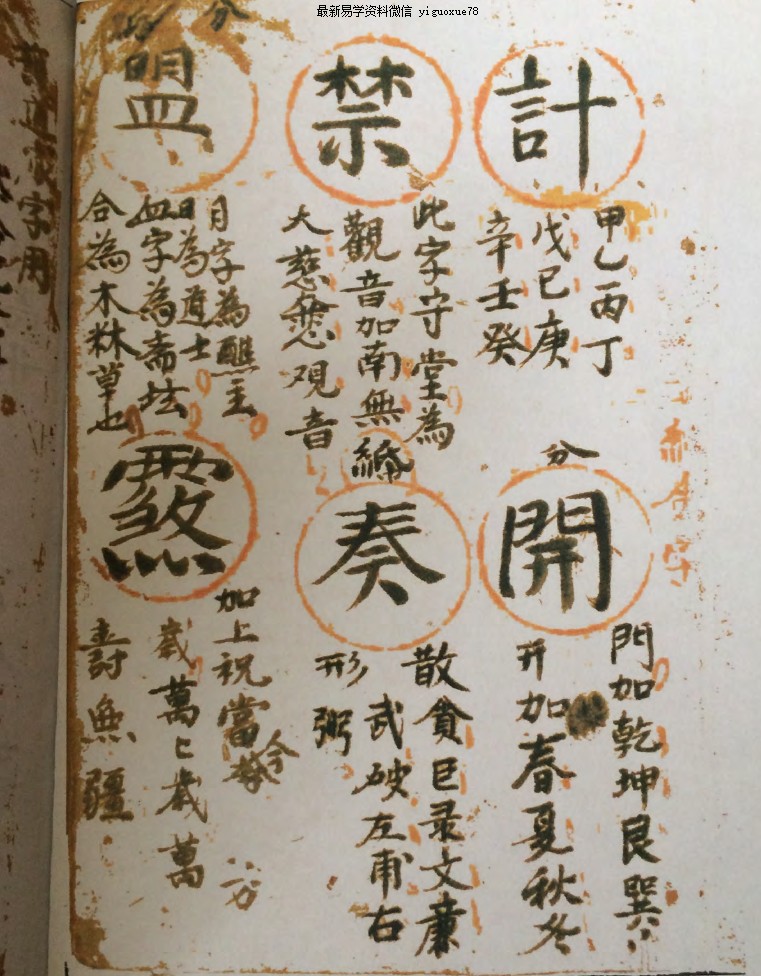 最新易学资料微信 yiguoxue78
計
甲乙丙丁
戊己庚
辛壬癸
禁
此字守堂為
觀音加南無
大慈悲观音
分
盟
月字為醮主
日為道士
血字為斋坛
合為木林草也
分
開
門加乾坤艮巽
开加春夏秋冬
奏
散貪巨录文廉
武破左甫右
形弼
加上祝當
今
歲萬〻歲萬
壽無疆
字用